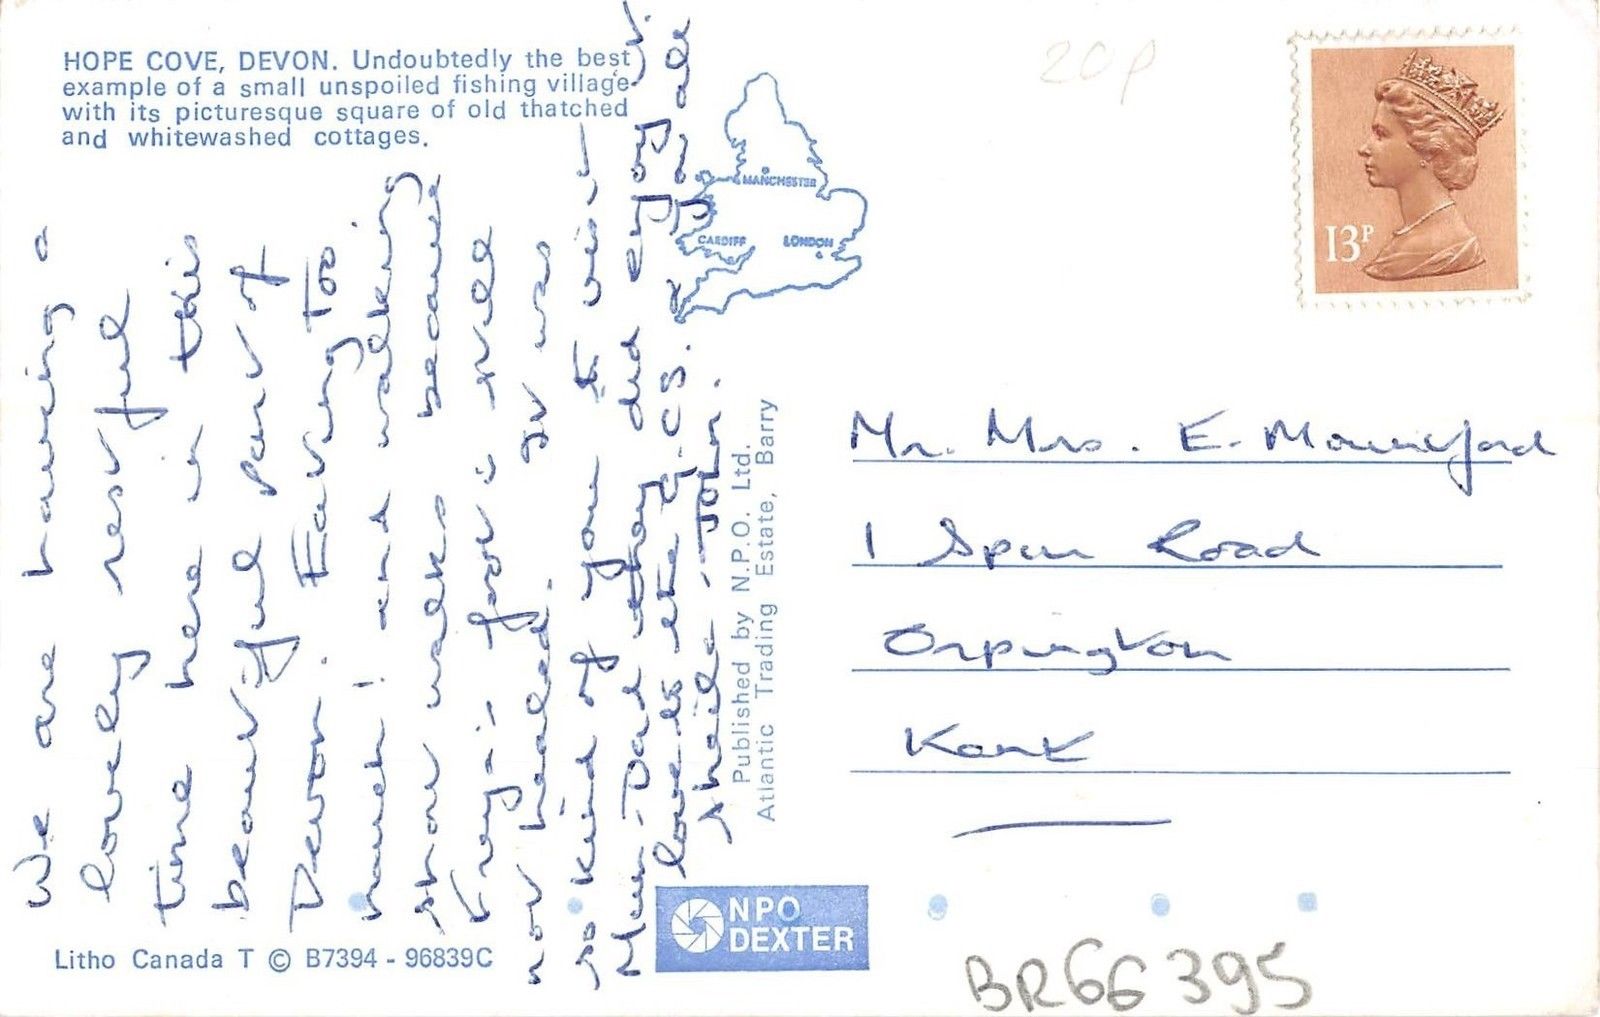 HOPE COVE, DEVON. Undoubtedly the best
example of a small unspoiled fishing village
with its picturesque square of old thatched
and whitewashed cottages.
We are having a
lovely restful
time here in this
beautiful part of
Devon. Eating Too
much! and walking
short walks because
Freya's foot is still
not healed. It was
so kind of you to visit
Mum - Dad they did enjoy it.
love to the G.CS.
Sheila - John.
MANCHESTER
CARDIFF
LONDON
Published by N.P.O. Ltd.
Atlantic Trading Estate, Barry
NPO
DEXTER
Litho Canada T © B7394 - 96839C
20p
13P
Mr. Mrs. E. Mountford
1 Spur Road
Orpington
Kent
BR66 395